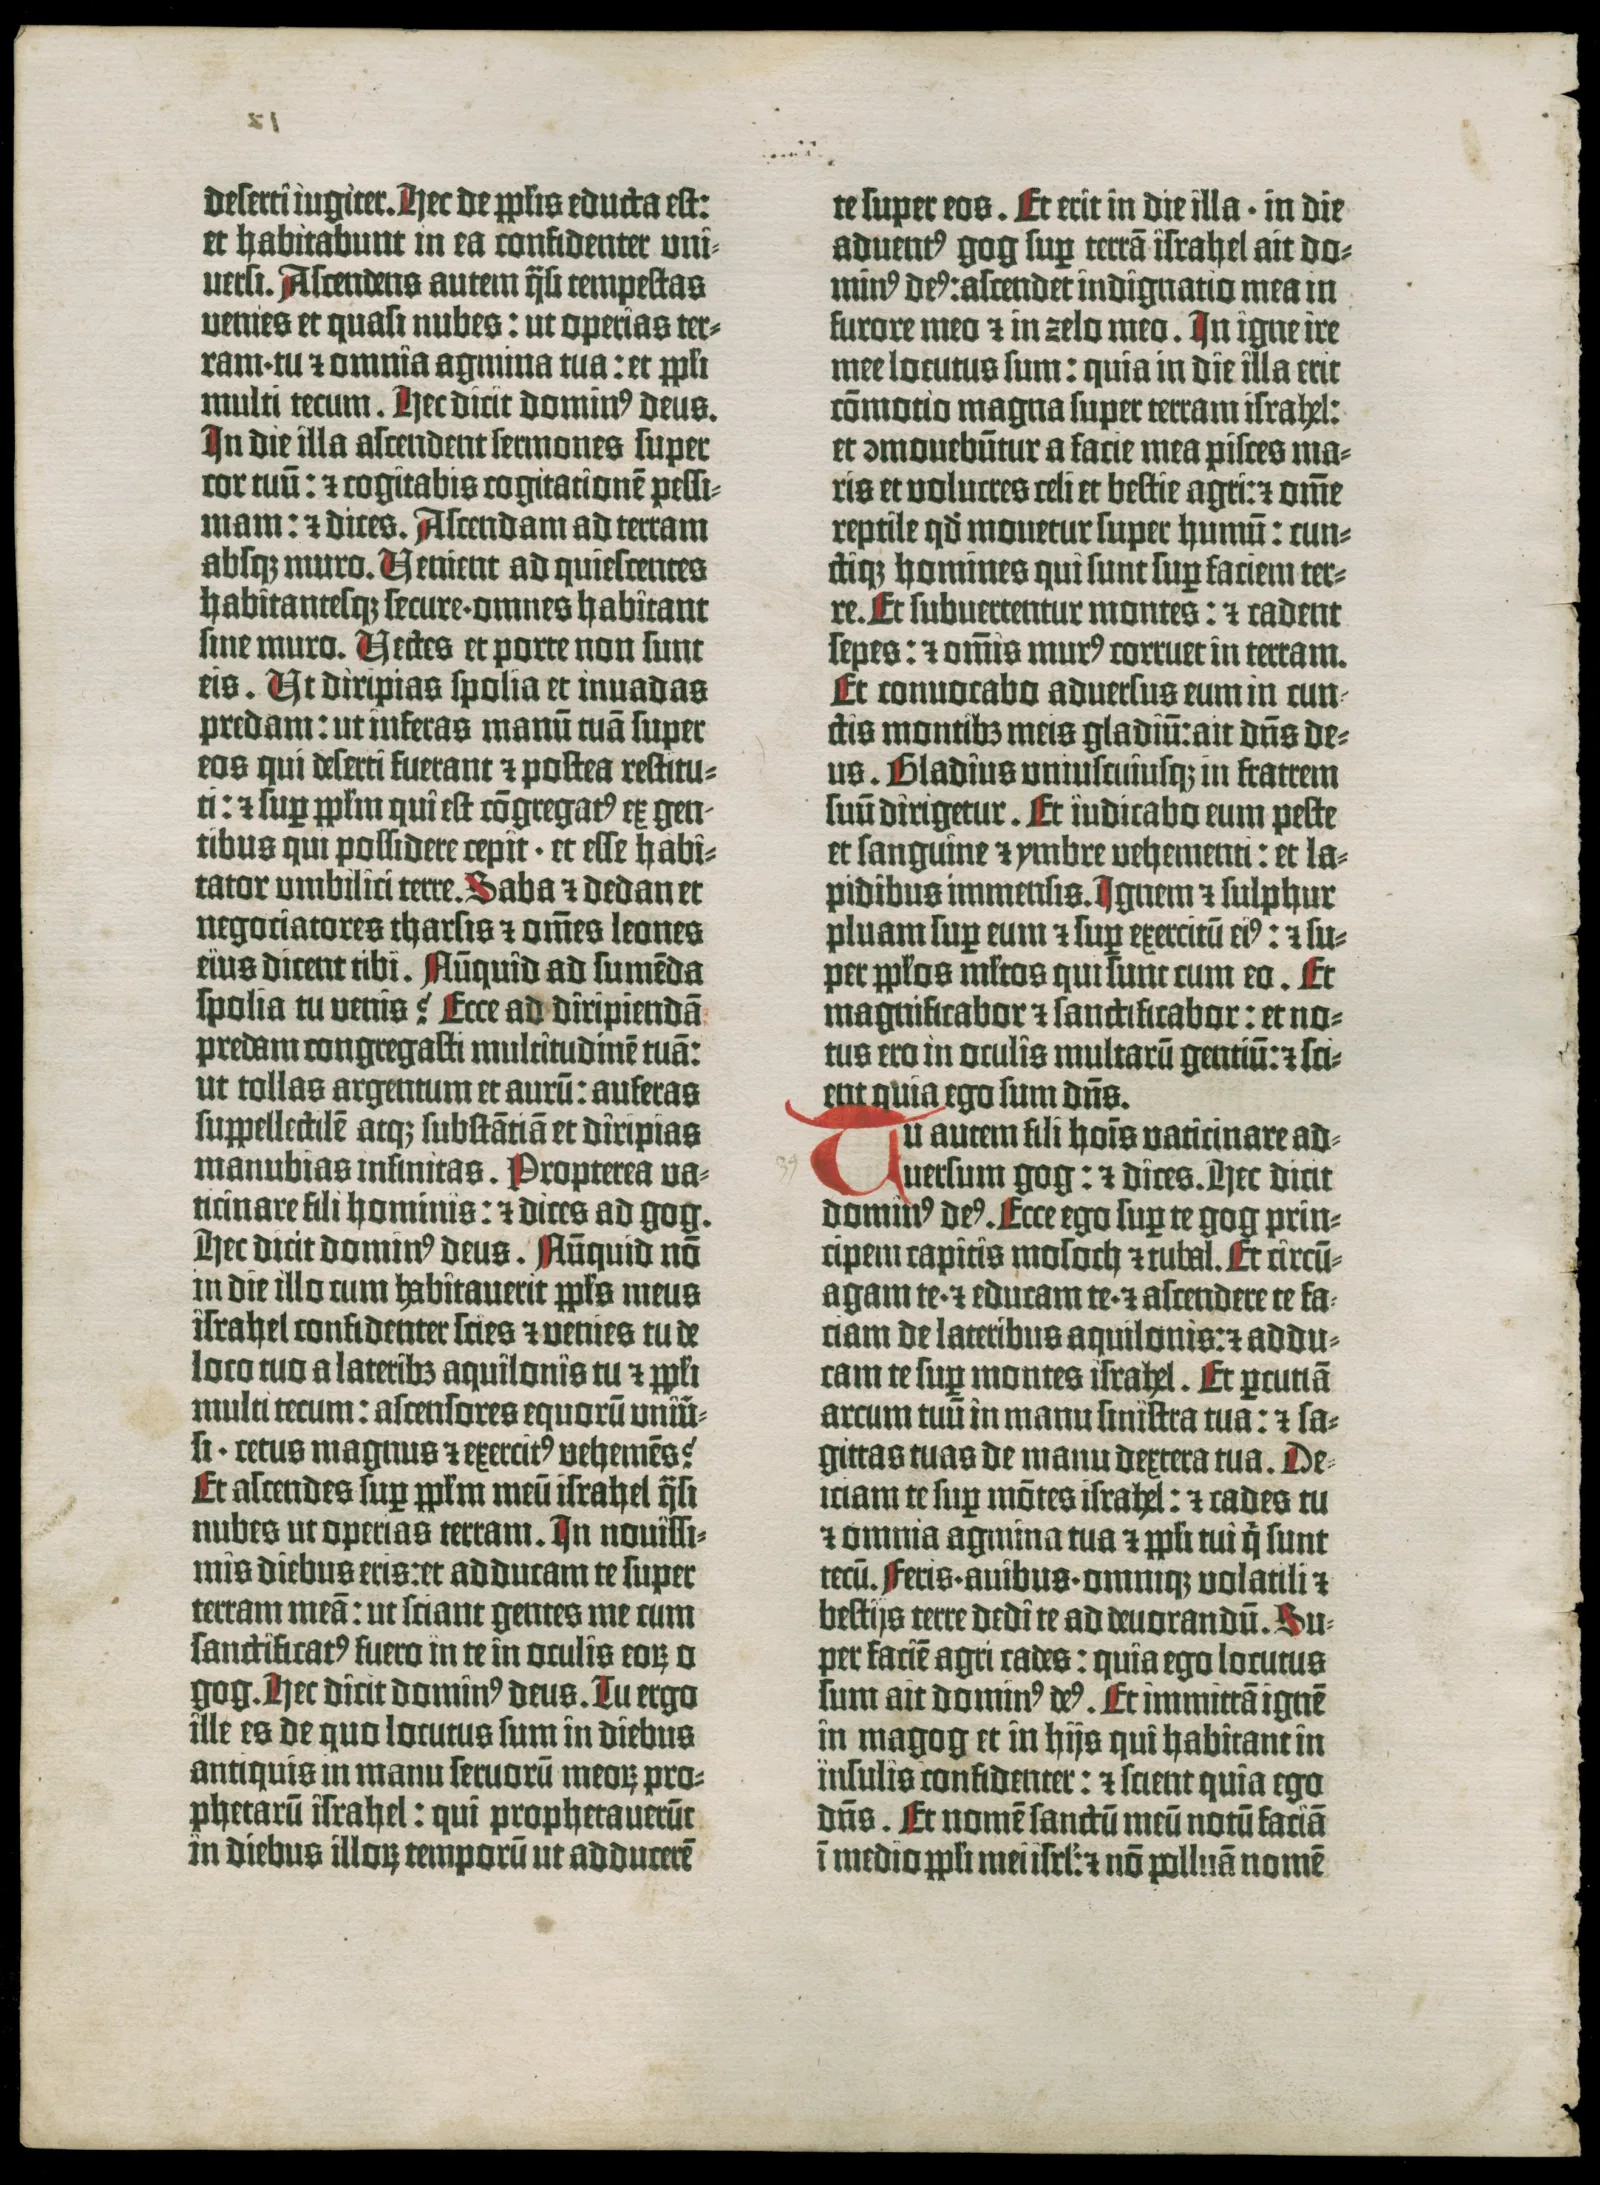 deserti iugiter. Hec de ppl̄is educta est:
et habitabunt in ea confidenter uni⸗
uersi. Ascendens autem q̄si tempestas
venies et quasi nubes: ut operias ter⸗
ram·tu ⁊ omnia agmina tua: et ppl̄i
multi tecum. Hec dicit dominꝰ deus.
In die illa ascendent sermones super
cor tuū: ⁊ cogitabis cogitationē pessi⸗
mam: ⁊ dices. Ascendam ad terram
absqꝫ muro. Veniēt ad quiescentes
habitantesqꝫ secure·omnes habitant
sine muro. Vectes et porte non sunt
eis. Ut diripias spolia et inuadas
predam: ut inferas manū tuā super
eos qui deserti fuerant ⁊ postea restitu⸗
ti: ⁊ suꝑ ppl̄m qui est cōgregatꝰ ex gen⸗
tibus qui possidere cepit · et esse habi⸗
tator umbilici terre. Saba ⁊ dedan et
negociatores tharsis ⁊ om̄es leones
eius dicent tibi. Nūquid ad sumēda
spolia tu venis? Ecce ad diripiendā
predam congregasti multitudinē tuā:
ut tollas argentum et aurū: auferas
suppellectilē atqꝫ substātiā et diripias
manubias infinitas. Propterea va⸗
ticinare fili hominis: ⁊ dices ad gog.
Hec dicit dominꝰ deus. Nūquid nō
in die illo cum habitauerit ppl̄s meus
israhel confidenter scies ⁊ venies tu de
loco tuo a lateribꝫ aquilonis tu ⁊ ppl̄i
multi tecum: ascensores equorū uniū⸗
si · cetus magnus ⁊ exercitꝰ vehemēs?
Et ascendes suꝑ ppl̄m meū israhel q̄si
nubes ut operias terram. In nouissi⸗
mis diebus eris: et adducam te super
terram meā: ut sciant gentes me cum
sanctificatꝰ fuero in te in oculis eoꝝ o
gog. Hec dicit dominꝰ deus. Tu ergo
ille es de quo locutus sum in diebus
antiquis in manu seruorū meoꝝ pro⸗
phetarū israhel: qui prophetauerūt
in diebus illoꝝ temporū ut adducerē
te super eos. Et erit in die illa · in die
aduentꝰ gog suꝑ terrā israhel ait do⸗
minꝰ deꝰ: ascendet indignatio mea in
furore meo ⁊ in zelo meo. In igne ire
mee locutus sum: quia in die illa erit
cōmotio magna super terram israhel:
et ↄmouebūtur a facie mea pisces ma⸗
ris et volucres celi et bestie agri: ⁊ om̄e
reptile qđ mouetur super humū: cun⸗
ctiqꝫ homines qui sunt suꝑ faciem ter⸗
re. Et subuertentur montes: ⁊ cadent
sepes: ⁊ om̄is murꝰ corruet in terram.
Et conuocabo aduersus eum in cun⸗
ctis montibꝫ meis gladiū: ait dn̄s de⸗
us. Gladius uniuscuiusqꝫ in fratrem
suū dirigetur. Et iudicabo eum peste
et sanguine ⁊ ymbre vehementi: et la⸗
pidibus immensis. Ignem ⁊ sulphur
pluam suꝑ eum ⁊ suꝑ exercitū eiꝰ: ⁊ su⸗
per ppl̄os ml̄tos qui sunt cum eo. Et
magnificabor ⁊ sanctificabor: et no⸗
tus ero in oculis multarū gentiū: ⁊ sci⸗
ent quia ego sum dn̄s.
Tu autem fili hoīs vaticinare ad⸗
39 uersum gog: ⁊ dices. Hec dicit
dominꝰ deꝰ. Ecce ego suꝑ te gog prin⸗
cipem capitis mosoch ⁊ tubal. Et circū⸗
agam te·⁊ educam te·⁊ ascendere te fa⸗
ciam de lateribus aquilonis: ⁊ addu⸗
cam te suꝑ montes israhel. Et ꝑcutiā
arcum tuū in manu sinistra tua: ⁊ sa⸗
gittas tuas de manu dextera tua. De⸗
iciam te suꝑ mōtes israhel: ⁊ cades tu
⁊ omnia agmina tua ⁊ ppl̄i tui q̄ sunt
tecū. Feris·auibus·omniqꝫ volatili ⁊
bestijs terre dedi te ad deuorandū. Su⸗
per faciē agri cades: quia ego locutus
sum ait dominꝰ deꝰ. Et immittā ignē
in magog et in hijs qui habitant in
insulis confidenter: ⁊ scient quia ego
dn̄s. Et nomē sanctū meū notū faciā
ī medio ppl̄i mei isrl̄: ⁊ nō polluā nomē